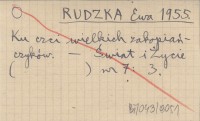 RUDZKA Ewa 1955.
Ku czci wielkich zakopiań-
czyków. — Świat i Życie
( ) nr 7: 3.